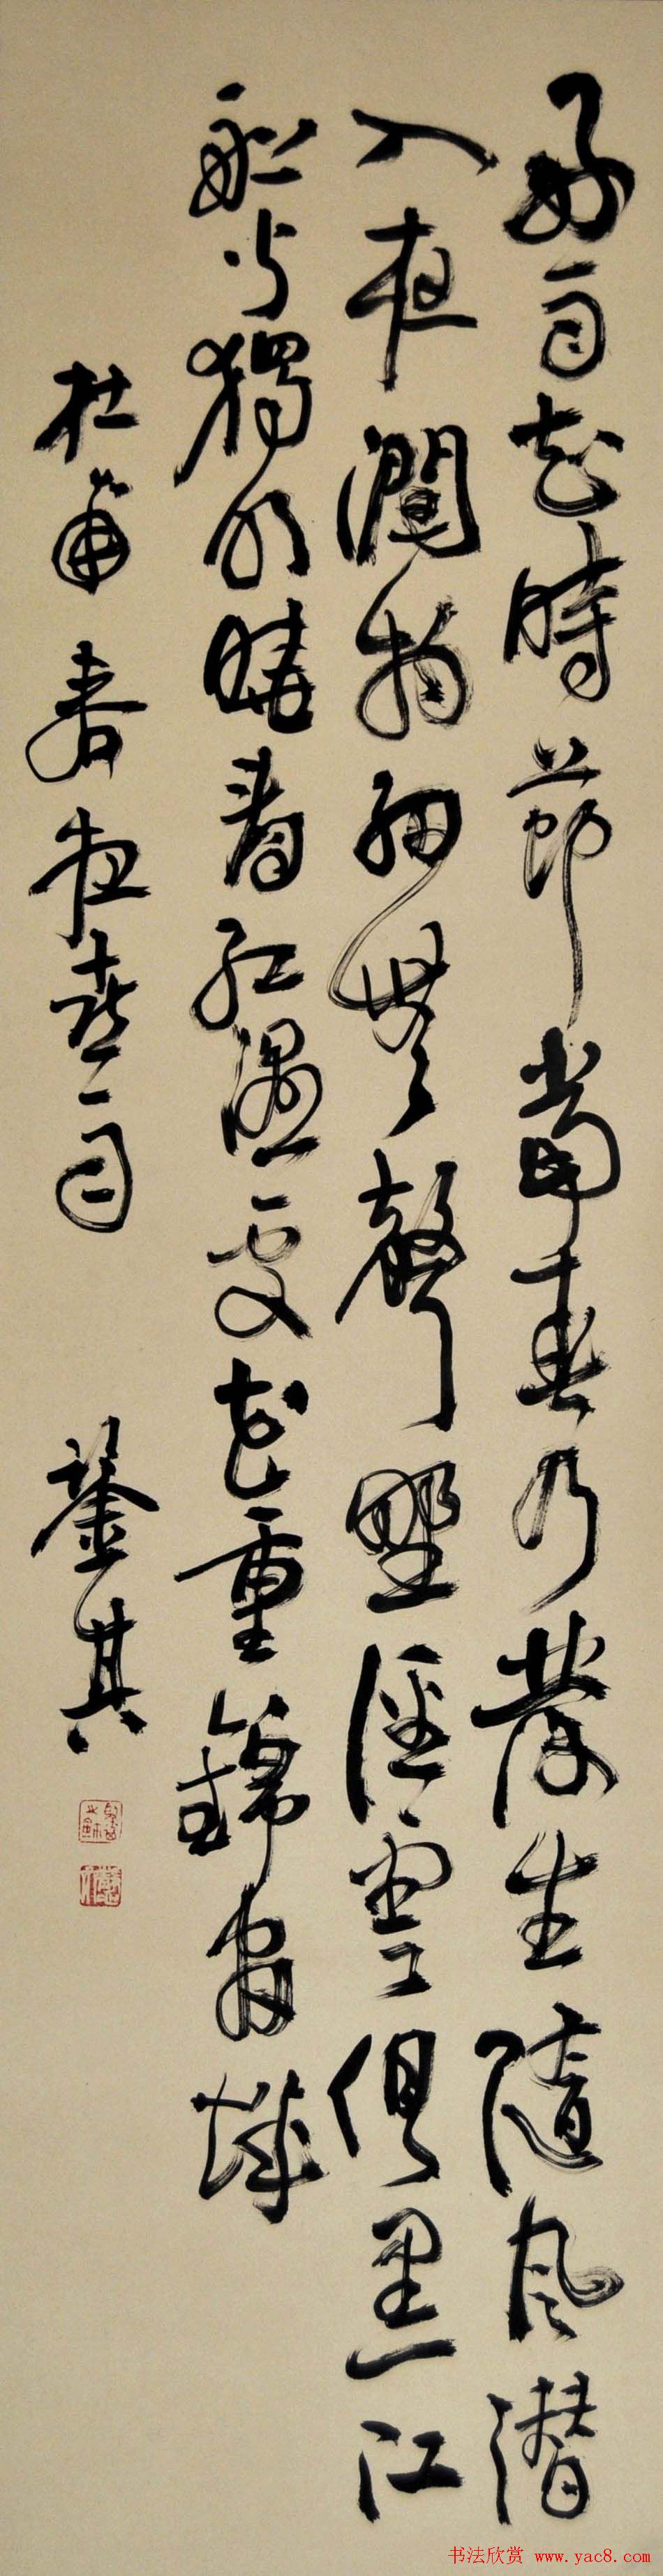 好雨知時節當春乃發生隨風潛
入夜潤物細無聲野徑雲俱黑江
船火獨明曉看紅濕處花重錦官城
杜甫春夜喜雨
其
书法欣赏 www.yac8.com